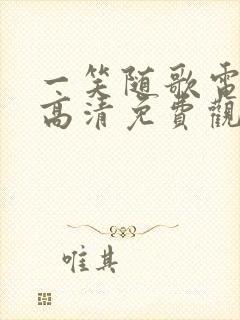 一笑随歌電
高清免費觀
唯其